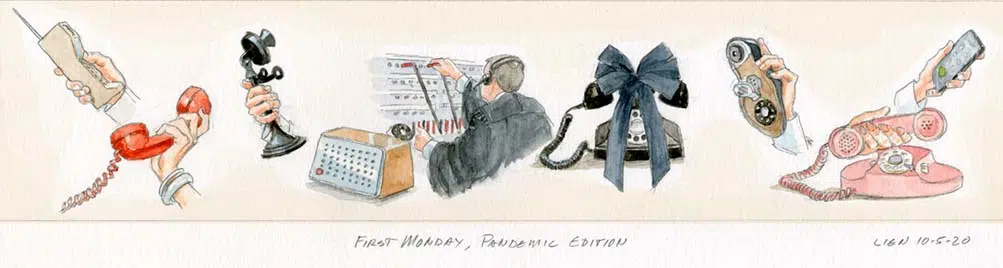 FIRST MONDAY, PANDEMIC EDITION
LIEN 10-5-20